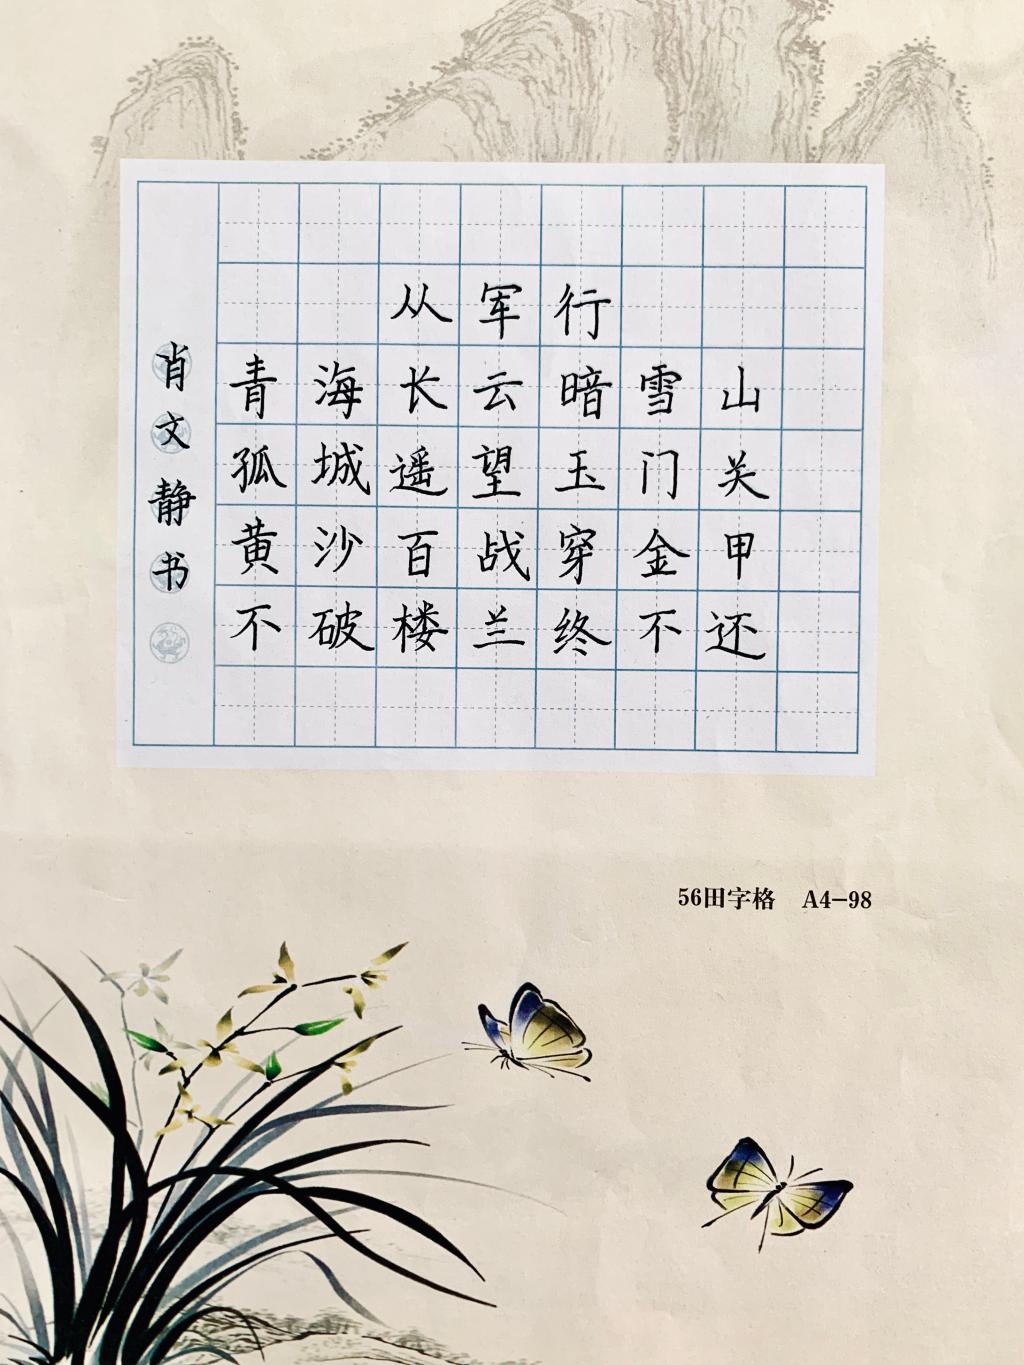 从军行
青海长云暗雪山
孤城遥望玉门关
黄沙百战穿金甲
不破楼兰终不还
肖文静书
56田字格 A4-98